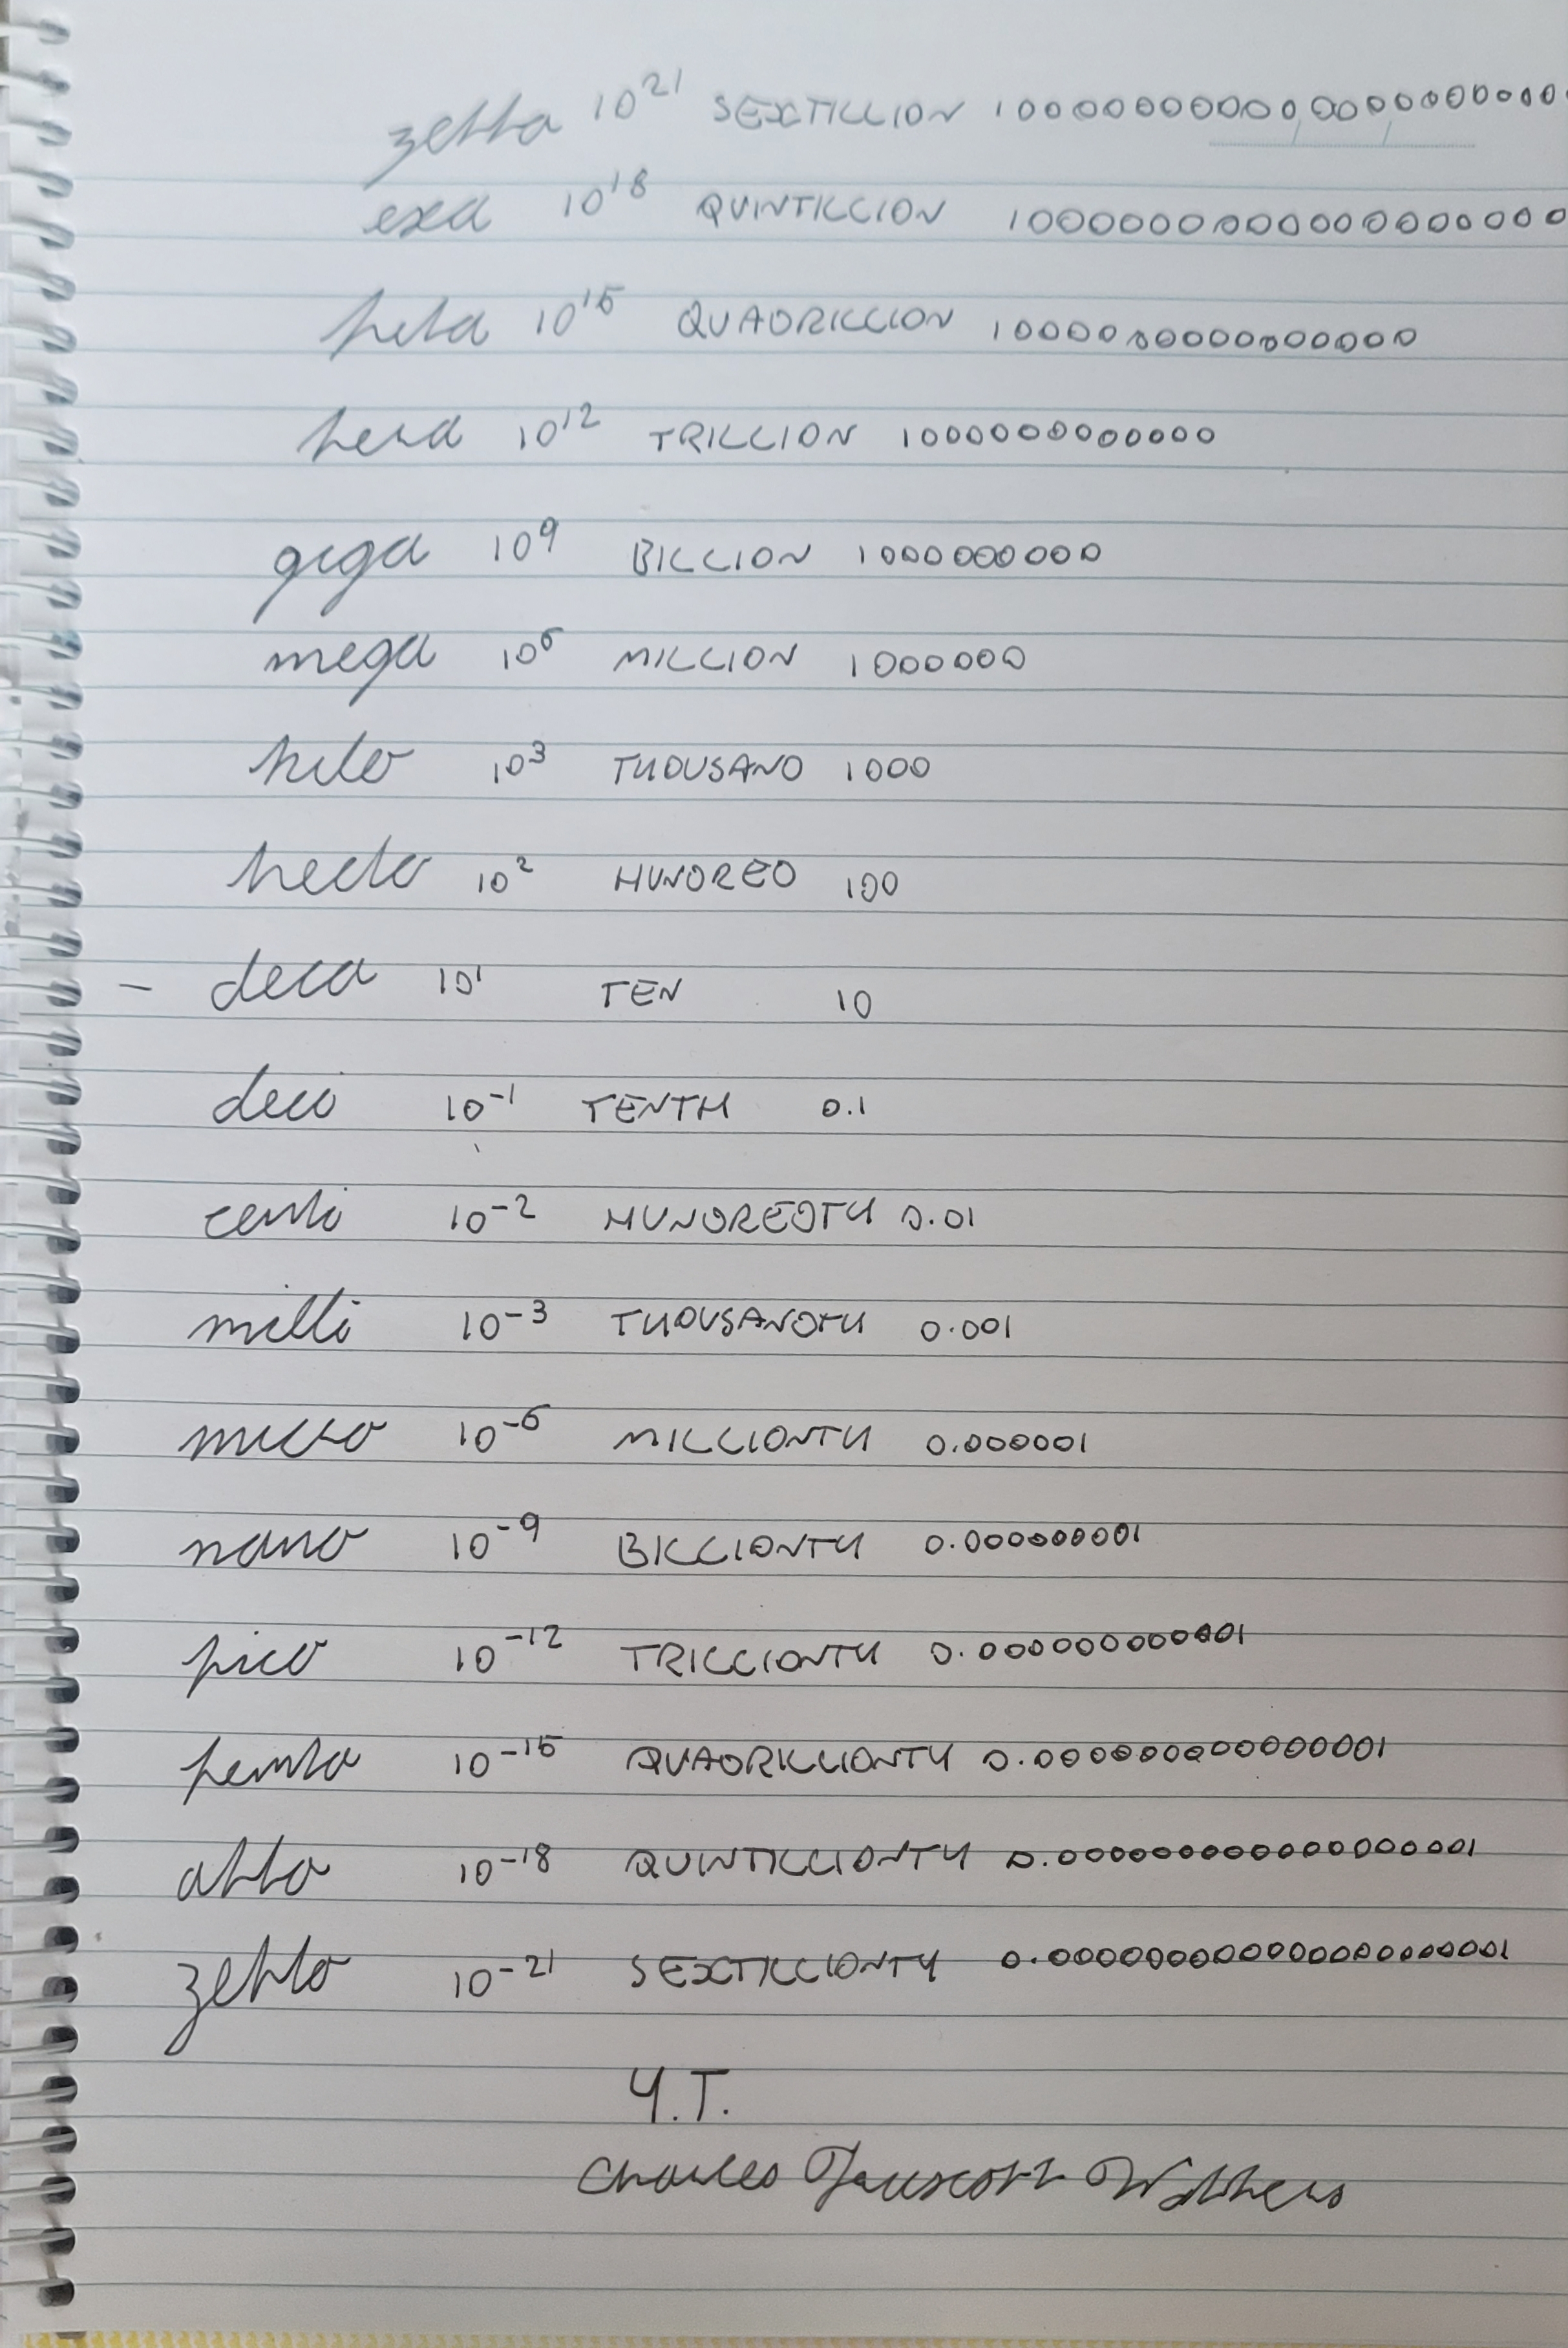 zetta 10²¹ SEXTILLION 1000000000000000000000
exa 10¹⁸ QUINTILLION 1000000000000000000
peta 10¹⁵ QUADRILLION 1000000000000000
tera 10¹² TRILLION 1000000000000
giga 10⁹ BILLION 1000000000
mega 10⁶ MILLION 1000000
kilo 10³ THOUSAND 1000
hecto 10² HUNDRED 100
- deca 10¹ TEN 10
deci 10⁻¹ TENTH 0.1
centi 10⁻² HUNDREDTH 0.01
milli 10⁻³ THOUSANDTH 0.001
micro 10⁻⁶ MILLIONTH 0.000001
nano 10⁻⁹ BILLIONTH 0.000000001
pico 10⁻¹² TRILLIONTH 0.000000000001
femto 10⁻¹⁵ QUADRILLIONTH 0.000000000000001
atto 10⁻¹⁸ QUINTILLIONTH 0.000000000000000001
zepto 10⁻²¹ SEXTILLIONTH 0.000000000000000000001
Y.T.
Charles